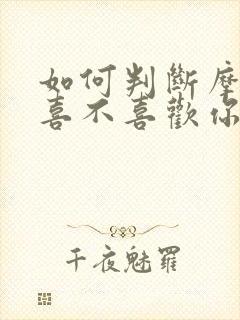 如何判斷摩
喜不喜歡你
千夜魅羅